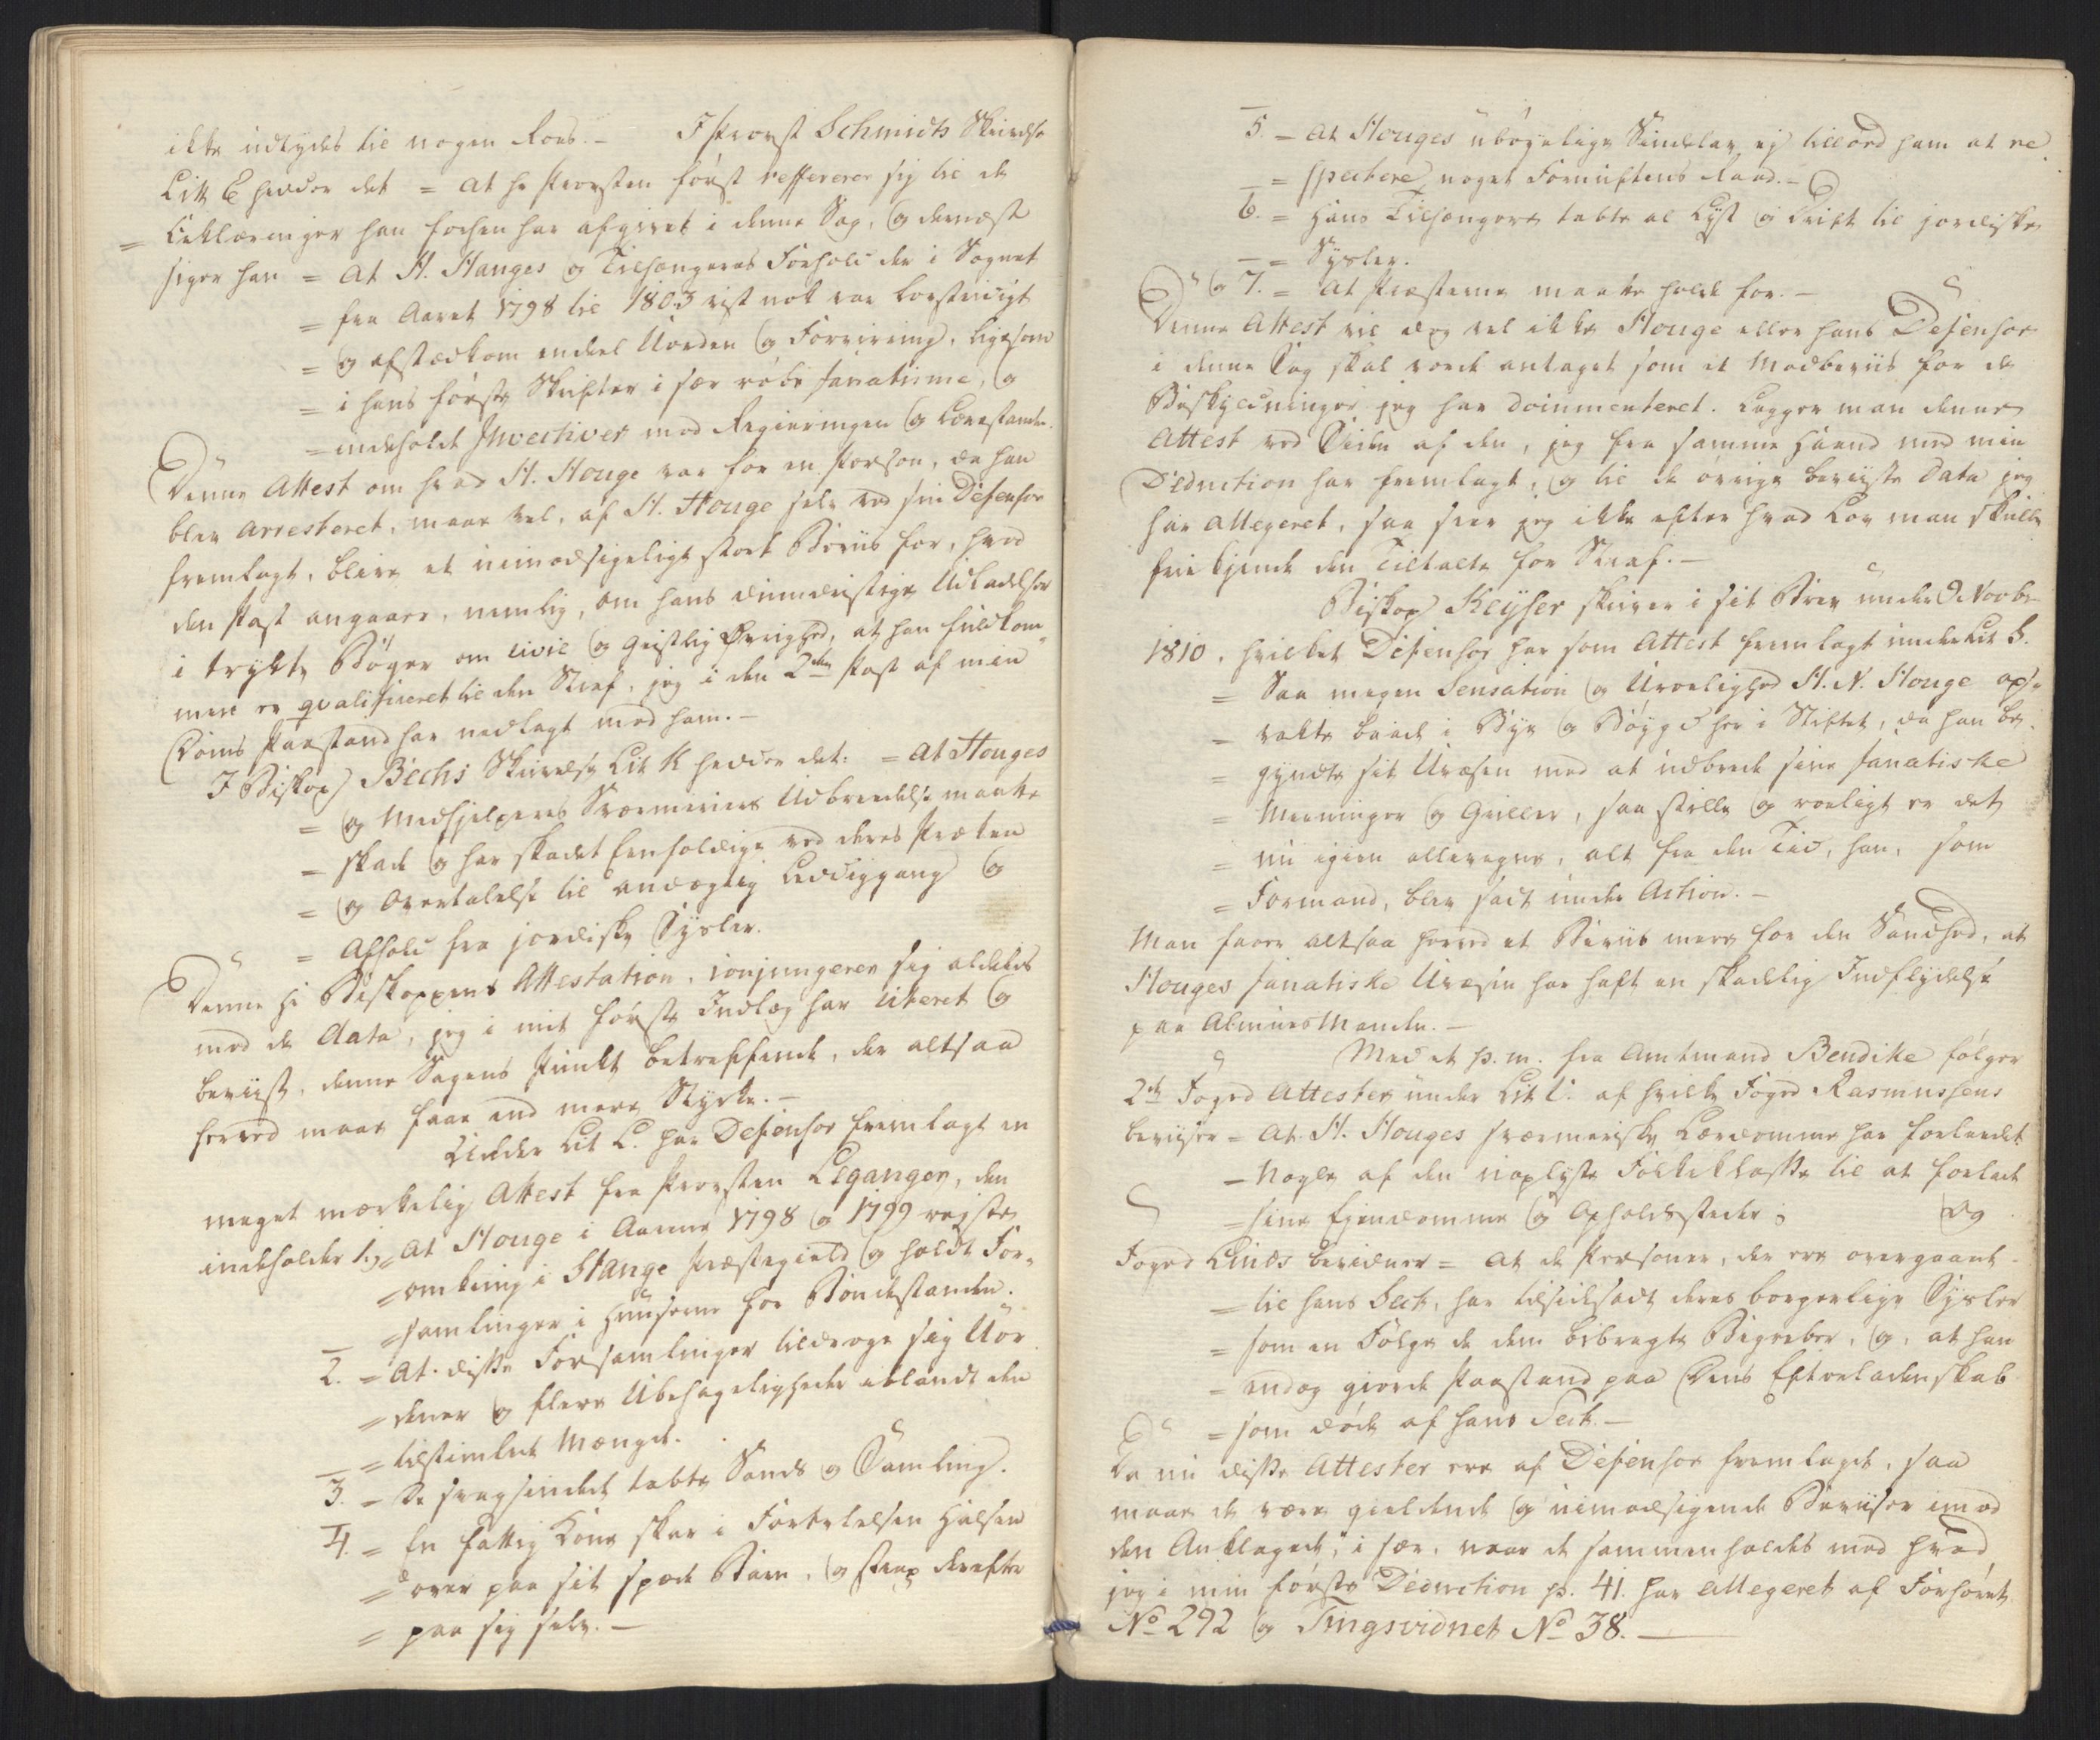 ikke udtydes til nogen Roes. – I Provst Schmidts Skrivelse
Litr E hedder det = at hr Provsten først reffererer sig til de
= Erklæringer han forhen har afgivet i denne Sag, og dernæst
siger han = at H. Hauges og Tilhængeres Forhold der i Sognet
= fra Aaret 1798 til 1803 vist nok var lovstridigt
= og afstædkom endeel Uorden og Forvirring, ligesom
= i hans første Skrifter i sær röbe fanatisme, og
= indeholdt Invectiver mod Regieringen og Lærestanden.
Denne Attest om hvad H. Houge var for en Person, da han
blev arresteret, maae vel, af H. Houge selv ved sin Defensor
fremlagt, blive et uimodsigeligt stort Beviis for, hvad
den Post angaaer, nemlig, om hans dumdristige Udladelser
i trykte Bøger om civil og geistlig Øvrighed, at han fuldkom-
men er qvalificeret til den Straf, jeg i den 2den Post af min
Doms Paastand har nedlagt mod ham. –
I Biskop Bechs Skrivelse Lit K hedder det: = at Houges
= og Medhjelperes Sværmeriers Udbredelse maatte
= skade og har skadet Eenfoldige ved deres Præken
= og Overtalelse til andægtig Lediggang og
= Afhold fra jordiske Sysler.
Denne Hr Biskoppens Attestation, conjungerer sig aldeles
med de data, jeg i mit første Indlæg har citeret og
beviist, denne Sagens Punkt betreffende, der altsaa
herved maae faae end mere Styrke. –
Under Lit L. har Defensor fremlagt en
meget mærkelig Attest fra Provsten Leganger, den
indeholder 1.) = at Houge i Aarene 1798 og 1799 rejste
= omkring i Stange Præstegield og holdt For-
= samlinger i Huuserne hos Bondestanden.
2. = At disse Forsamlinger tildroge sig Uor-
= dener og flere Ubehageligheder iblandt den
= tilstimlede Mængde.
3. = De svagsindede tabte Sands og Samling.
4. = En fattig Kone skar i Fortvilelsen Halsen
= over paa sit spæde Barn, og strax derefter
= paa sig selv. –
5. = at Houges ubøyelige Sindelav ej tillod ham at re-
= spectere noget Fornuftens Raad. –
6. = Hans Tilhængere tabte al Lyst og Drift til jordiske
= Sysler.
og 7. = At Præsterne maatte holde for. –
Denne Attest vil dog vel ikke Houge eller hans Defensor
i denne Sag skal vorde antaget som et Modbeviis for de
Beskyldninger jeg har documenteret. Legger man denne
Attest ved Siden af den, jeg fra samme Haand med min
Deduction har fremlagt, og til de øvrige beviiste Data jeg
har allegeret, saa seer jeg ikke efter hvad Lov man skulle
frikjende den Tiltalte for Straf. –
Biskop Keyser skriver i sit Brev under 9 Novbr
1810, hvilket Defensor har som Attest fremlagt under Lit S.
= Saa megen Sensation og Uroelighed H. N. Houge op-
= vakte baade i Bye og Bøygd her i Stiftet, da han be-
= gyndte sit Uvæsen med at udbrede sine fanatiske
= Meeninger og Griller, saa stille og roeligt er det
= nu igien allevegne, alt fra den Tid, han, som
= Formand, blev sadt under Action. –
Man faaer altsaa herved et Beviis mere for den Sandhed, at
Houges fanatiske Uvæsen har haft en skadelig Indflydelse
paa Almuesmanden. –
Med et p.m. fra Amtmand Bendike følger
2de Foged Attester under Lit V. af hvilke Foged Rasmussens
beviiser = At H. Houges sværmeriske Lærdomme har forledet
= Nogle af den uoplyste Folkeklasse til at forlade
= sine Ejendomme og Opholdssteder; Og
Foged Linds bevidner = At de Personer, der ere overgaaede
= til hans Sect, har tilsidesadt deres borgerlige Sysler
= som en Følge de dem bibragte Begreber, og, at han
= endog giorde Paastand paa Dens Efterladenskab
= som døde af hans Sect. –
Da nu disse Attester ere af Defensor fremlagde, saa
maae de være gieldende og uimodsigende Beviiser imod
den Anklagede, i sær, naar de sammenholdes med hvad
jeg i min første Deduction p. 41. har allegeret af Forhøret
No 292 og Tingsvidnet No 38. –